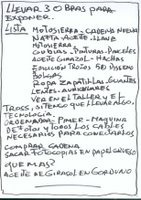 LLEVAR 3 OBRAS PARA
EXPONER.
LISTA MOTOSIERRA - CADENA NUEVA
ACEITE - LLAVE
MOTOSIERRA
GUBIAS - PINTURAS - PINCELES
ACEITE GIRASOL - MACHAS
EDICIÓN TROZOS
BOLSAS
ROPA ZAPATILLAS, GUANTES
LENTES - AURICULARES
VER EN EL TALLER Y EL
TROSS, INTENCO QUE LLEVAR ALGO.
TECNOLOGÍA.
ORDENADOR - PIMER - MAQUINA
DE FOTOS Y TODOS LOS CABLES
NECESARIOS PARA CONECTARLOS
COMPRAR CADENA
SACAR FOTOCOPIAS EN PAPEL GRUESO
QUE MAS?
ACEITE DE GIRASOL EN